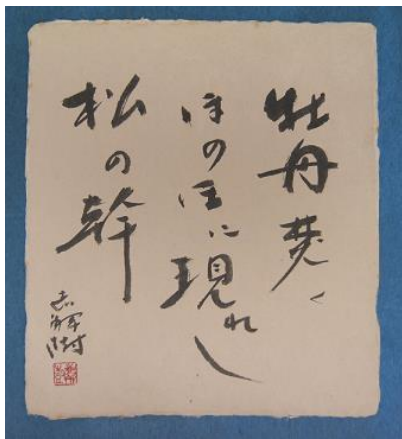 牡丹焚く
ほのほに現れし
松の幹
志解樹